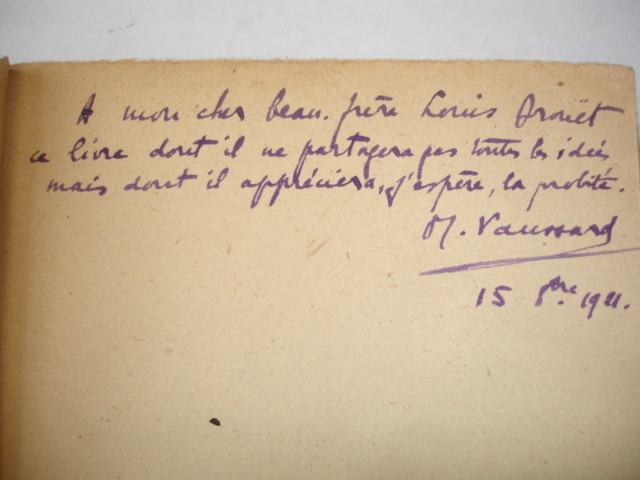 A mon cher beau-frère Louis Drouët
ce livre dont il ne partagera pas toutes les idées
mais dont il appréciera, j'espère, la probité.
M. Vaussard
15 8bre 1921.